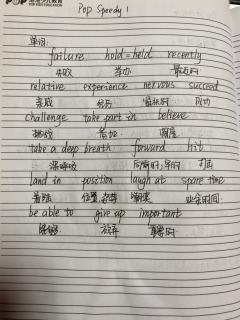 POP 泡泡少儿教育
POP KIDS EDUCATION
Pop Speedy 1
单词:
failure hold=held recently
失败 举办 最近的
relative experience nervous succeed
亲戚 经历 紧张的 成功
challenge take part in believe
挑战 参加
take a deep breath forward hit
深呼吸 打击
land in position laugh at spare time
着陆 位置 嘲笑 业余时间
be able to give up important
能够 放弃 重要的